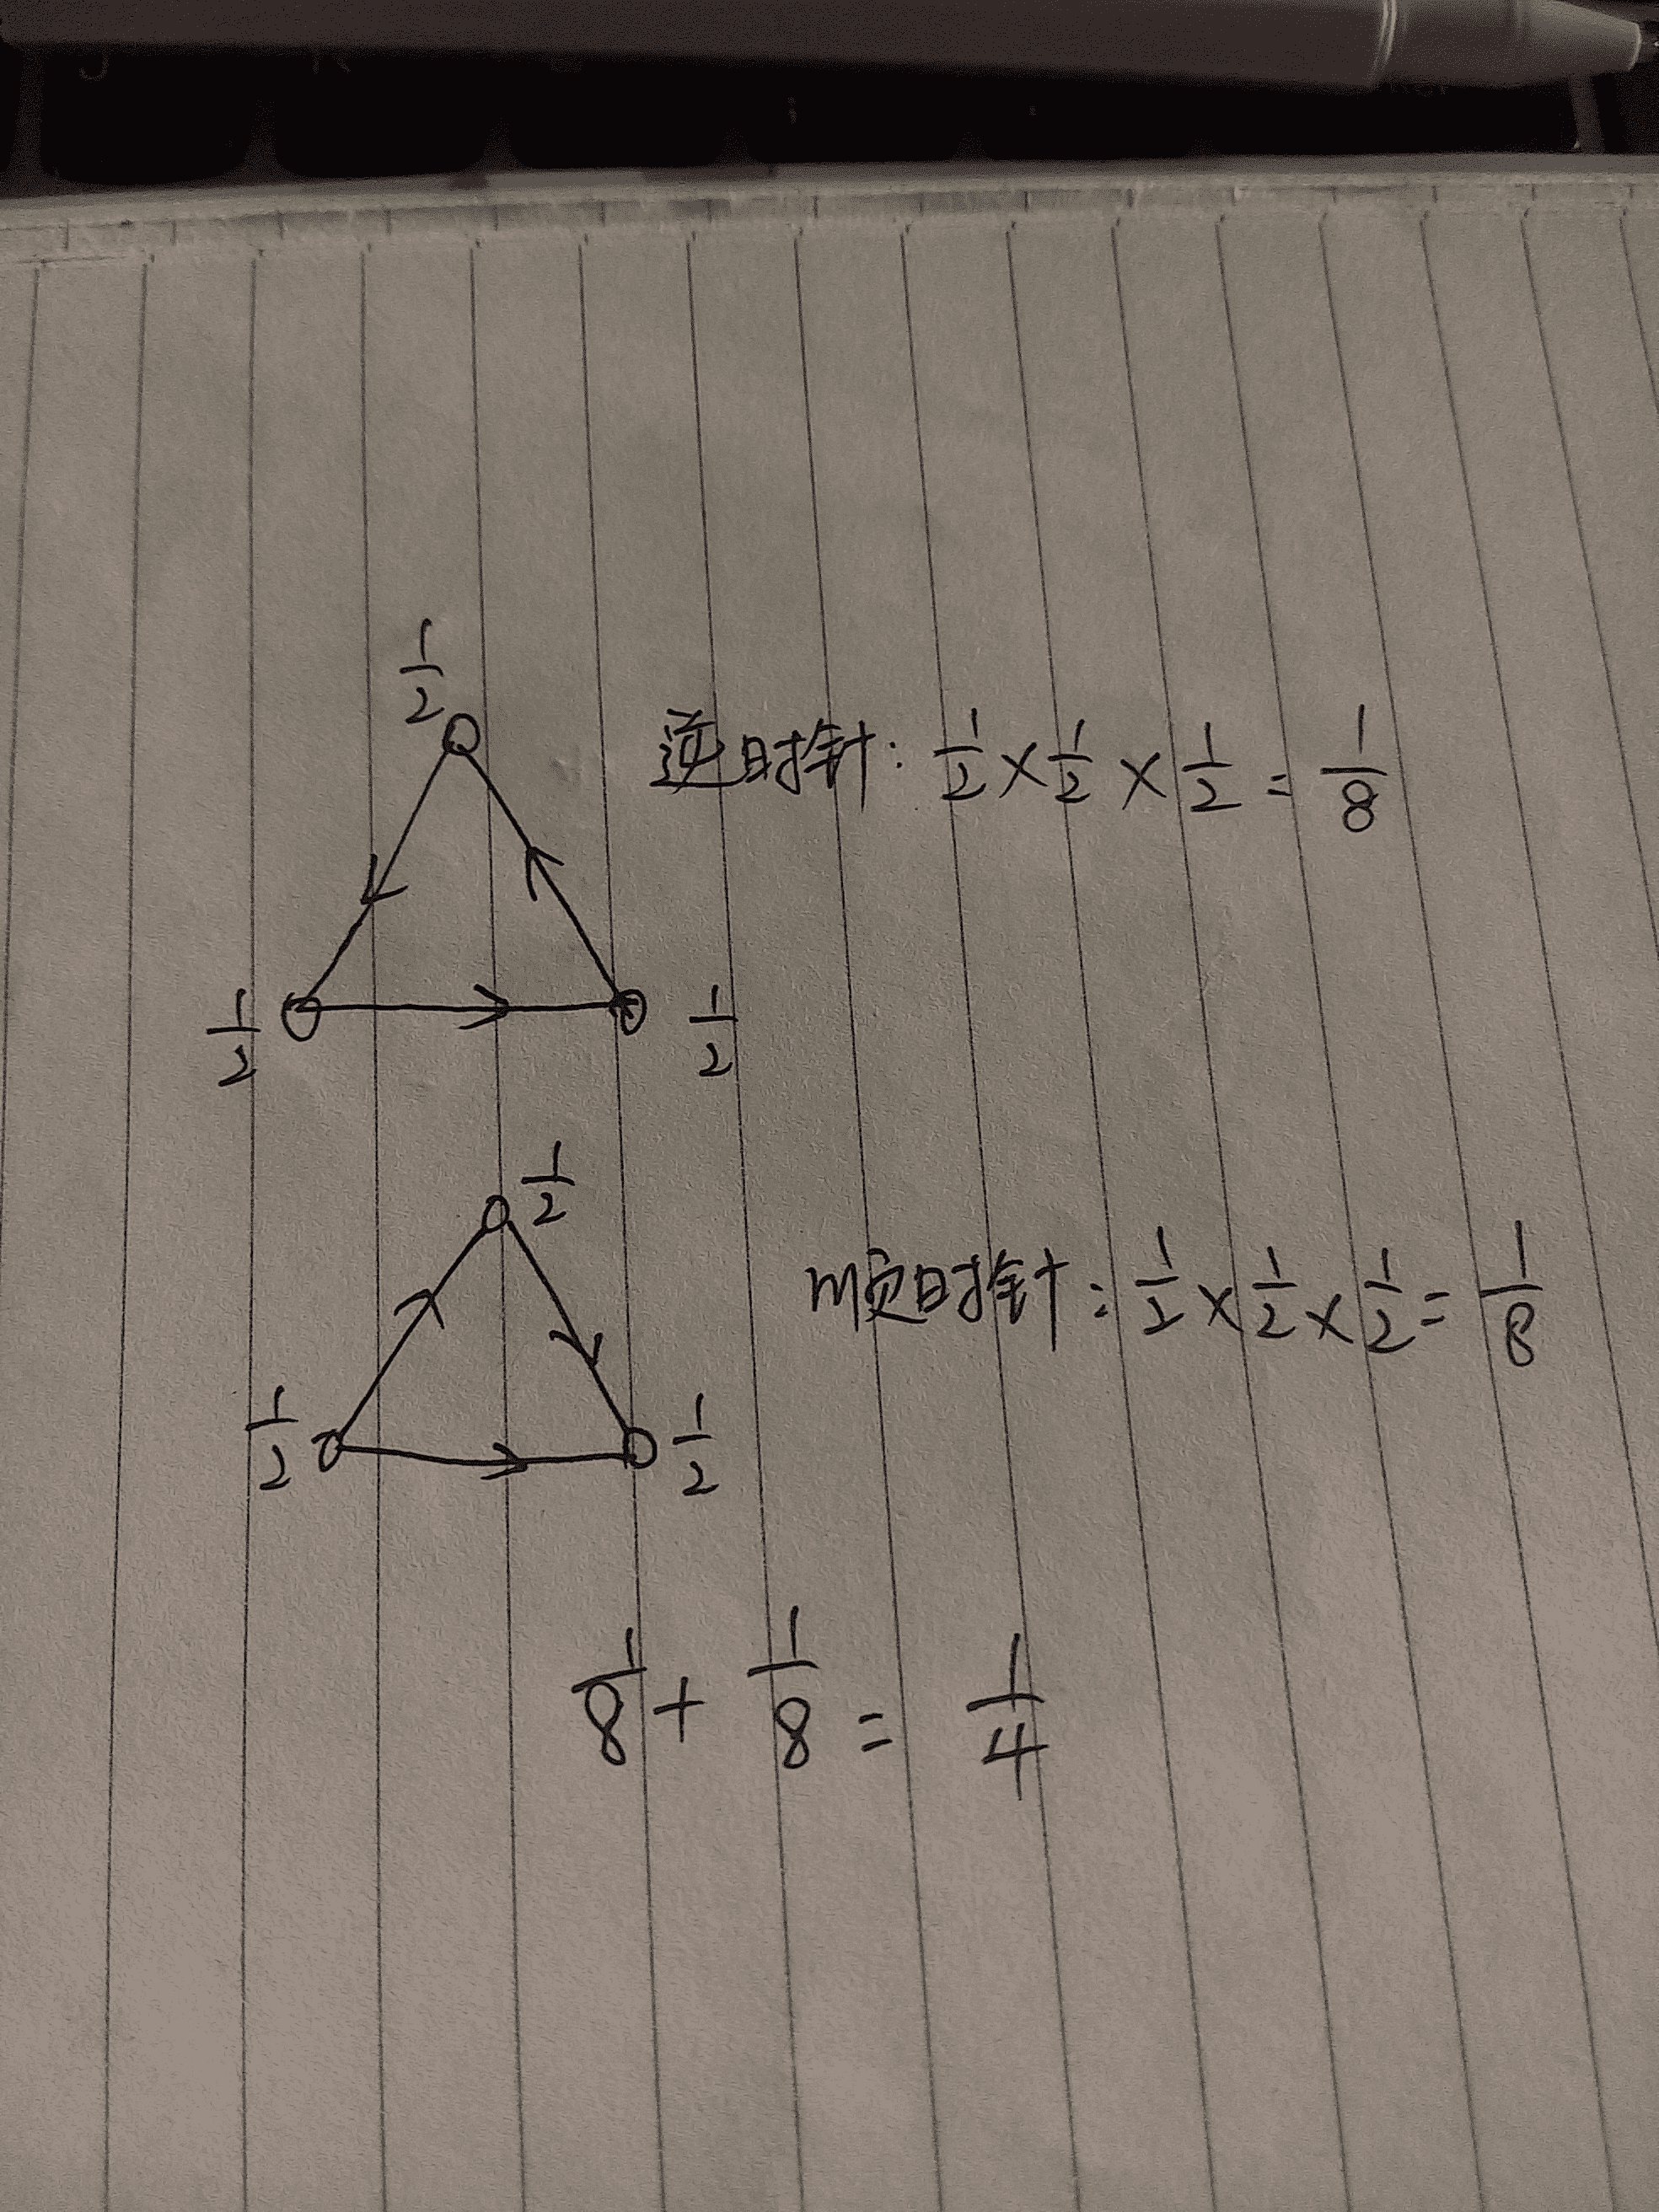 1/2
逆时针: 1/2 × 1/2 × 1/2 = 1/8
1/2 1/2
1/2
顺时针: 1/2 × 1/2 × 1/2 = 1/8
1/2 1/2
1/8 + 1/8 = 1/4